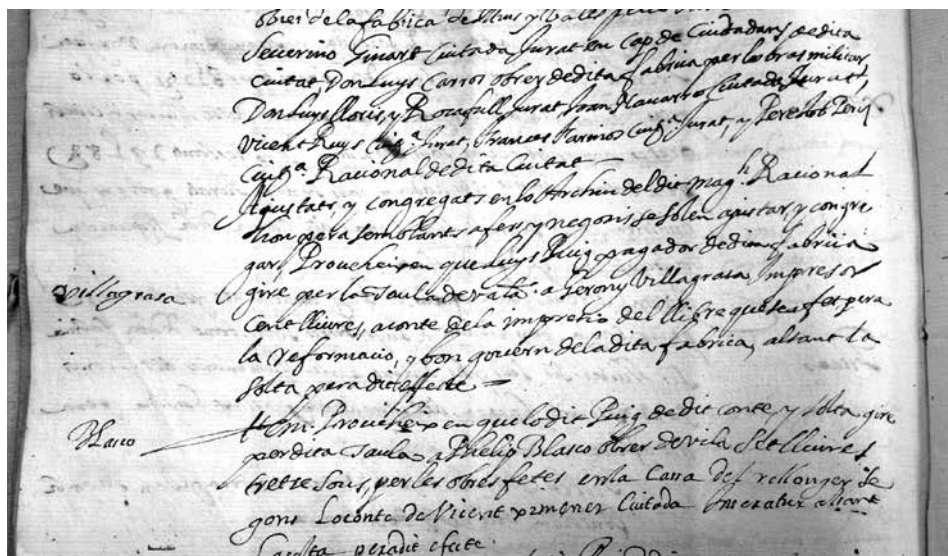 obrer de la fabrica de Murs y Valls
Severino Ginart Ciutada Jurat en Cap de Ciutadans de dita
Ciutat, Don Luys Carros obrer de dita fabrica per lo bras militar,
Don Luys lloris, y Rocafull Jurat Joan Navarro Ciutada Jurat,
Vicent Ruys Ciutª. Jurat, Frances Ciutª. Jurat, y Pere
Ciutª. Racional de dita Ciutat
Ajustats, y congregats en lo Archiu del dit Magch Racional
hon pera semblants afers, y negocis se solen ajustar, y congre
gar, Proueheixen que Luys Puig pagador de dita fabrica
Villagrasa
gire per la Taula de Valª. a Gerony Villagrasa Impresor
Cent lliures, a conte de la impresio del llibre que se a fet pera
la reformacio, y bon govern de la dita fabrica, altant la
solta pera dit effecte =
Blasco
Item. Proueheixen que lo dit Puig de dit conte y solta gire
per dita Taula a Phelip Blasco obrer de vila Set lliures
tretze sous, per les obres fetes en la Casa del rellonger se
gons lo conte de Vicent Ximenez Ciutada
la solta pera dit efecte.